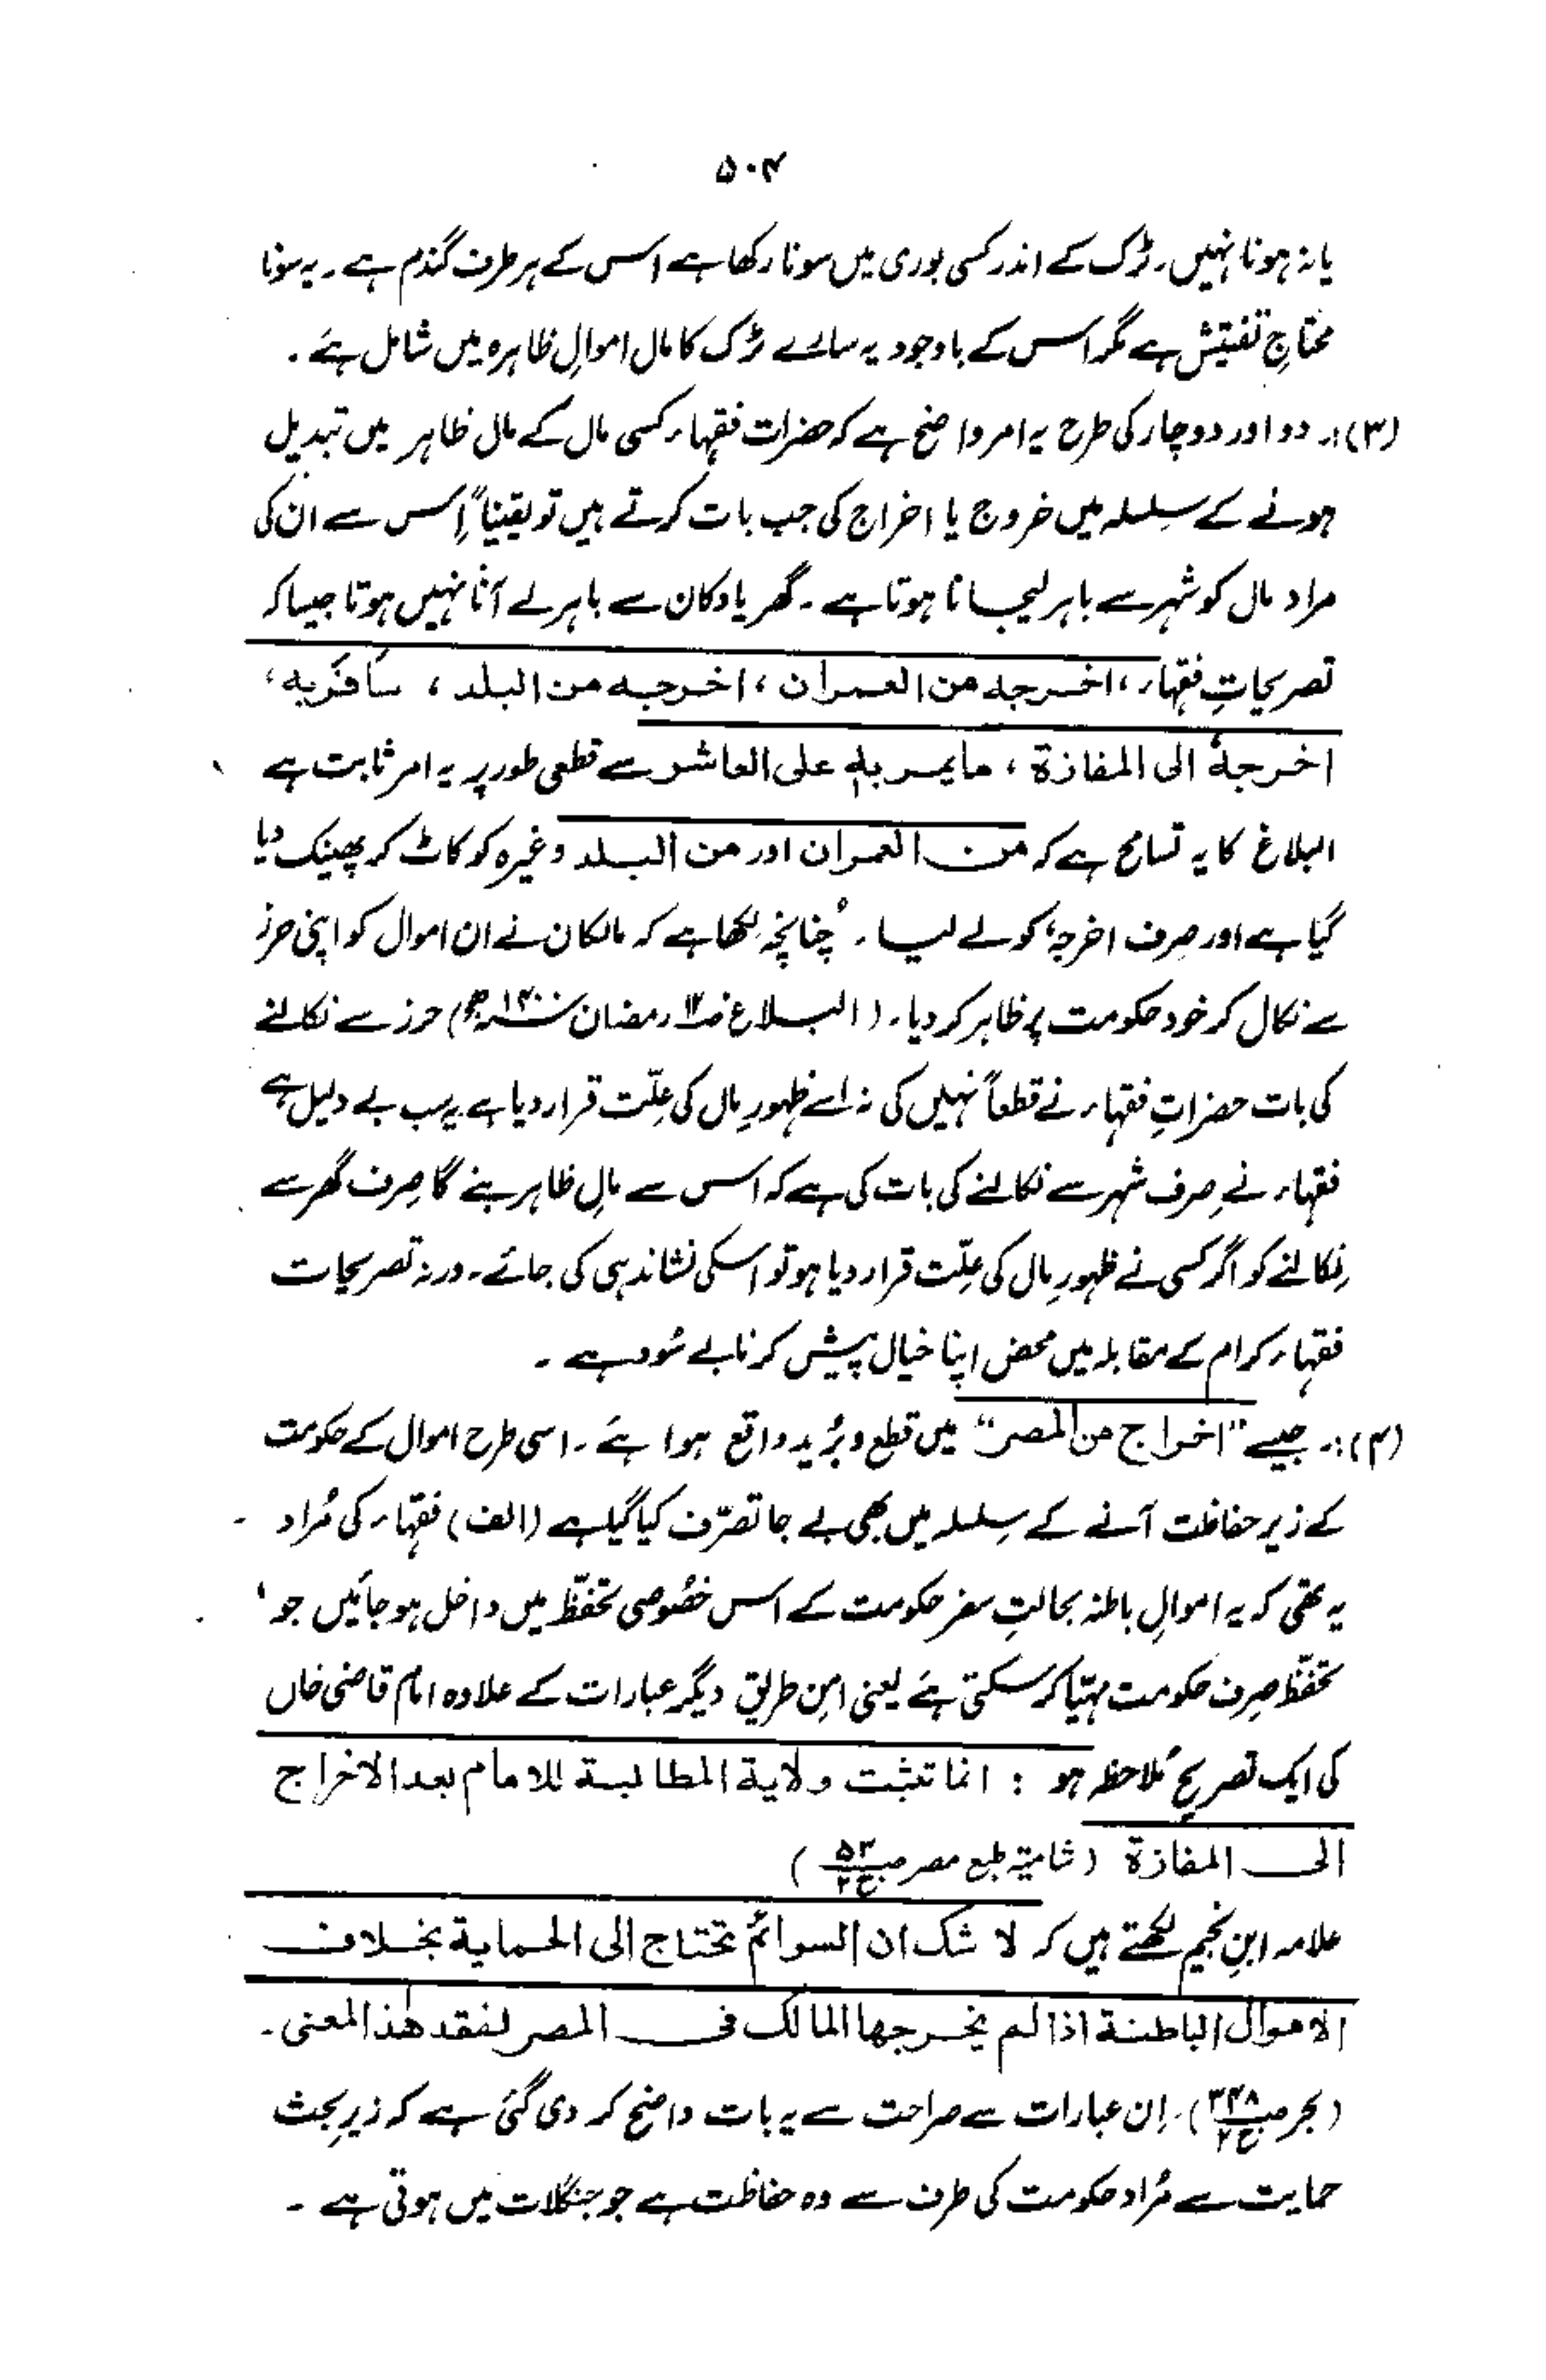 ۵۰۴
یا نہ ہونا نہیں۔ ٹرک کے اندر کسی بوری میں سونا رکھا ہے اس کے ہر طرف گندم ہے۔ یہ سونا
محتاجِ تفتیش ہے مگر اس کے باوجود یہ سارے ٹرک کا مال اموالِ ظاہرہ میں شامل ہے۔
(۳)؛۔ دو اور دو چار کی طرح یہ امر واضح ہے کہ حضرات فقہاء کسی مال کے مال ظاہر میں تبدیل
ہونے کے سلسلہ میں خروج یا اخراج کی جب بات کرتے ہیں تو یقیناً اِس سے ان کی
مراد مال کو شہر سے باہر لیجانا ہوتا ہے۔ گھر یا دکان سے باہر لے آنا نہیں ہوتا جیسا کہ
تصریحاتِ فقہاء، اخرجہ من العمران، اخرجہ من البلد، سافر بہ،
اخرجہٗ الی المفازۃ، ما یمر بہٖ علی العاشر سے قطعی طور پر یہ امر ثابت ہے
البلاغ کا یہ تسامح ہے کہ من العمران اور من البلد وغیرہ کو کاٹ کر پھینک دیا
گیا ہے اور صرف اخرجہٗ کو لے لیا۔ چنانچہ لکھا ہے کہ مالکان نے ان اموال کو اپنی حرز
سے نکال کر خود حکومت پر ظاہر کر دیا۔ (البلاغ رمضان ۱۴۰۰ھ) حرز سے نکالنے
کی بات حضراتِ فقہاء نے قطعاً نہیں کی نہ اسے ظہورِ مال کی علّت قرار دیا ہے یہ سب بے دلیل ہے
فقہاء نے صرف شہر سے نکالنے کی بات کی ہے کہ اس سے مالِ ظاہر بنے گا صرف گھر سے
نکالنے کو اگر کسی نے ظہورِ مال کی علّت قرار دیا ہو تو اسکی نشاندہی کی جائے۔ ورنہ تصریحات
فقہاء کرام کے مقابلہ میں محض اپنا خیال پیش کرنا بے سُود ہے۔
(۴)؛۔ جیسے "اخراج من المصر" میں قطع و بُرید واقع ہوا ہے۔ اسی طرح اموال کے حکومت
کے زیرِ حفاظت آنے کے سلسلہ میں بھی بے جا تصرّف کیا گیا ہے (الف) فقہاء کی مُراد
یہ تھی کہ یہ اموالِ باطنہ بحالتِ سفر حکومت کے اس خصُوصی تحفّظ میں داخل ہو جائیں جو
تحفّظ صِرف حکومت مہیّا کر سکتی ہے یعنی امنِ طریق دیگر عبارات کے علاوہ امام قاضی خاں
کی ایک تصریح مُلاحظہ ہو: انما تثبت ولایۃ المطالبۃ للامام بعد الاخراج
الی المفازۃ (شامیۃ طبع مصر ص۵۳ ج۲)
علامہ ابنِ نجیم لکھتے ہیں کہ لا شک ان السوائم تحتاج الی الحمایۃ بخلاف
الاموال الباطنۃ اذا لم یخرجہا المالک فی المصر لفقد ھٰذا المعنی۔
(بحر ص۲۴۸ ج۲)۔ اِن عبارات سے صراحت سے یہ بات واضح کر دی گئی ہے کہ زیرِ بحث
حمایت سے مُراد حکومت کی طرف سے وہ حفاظت ہے جو جنگلات میں ہوتی ہے۔